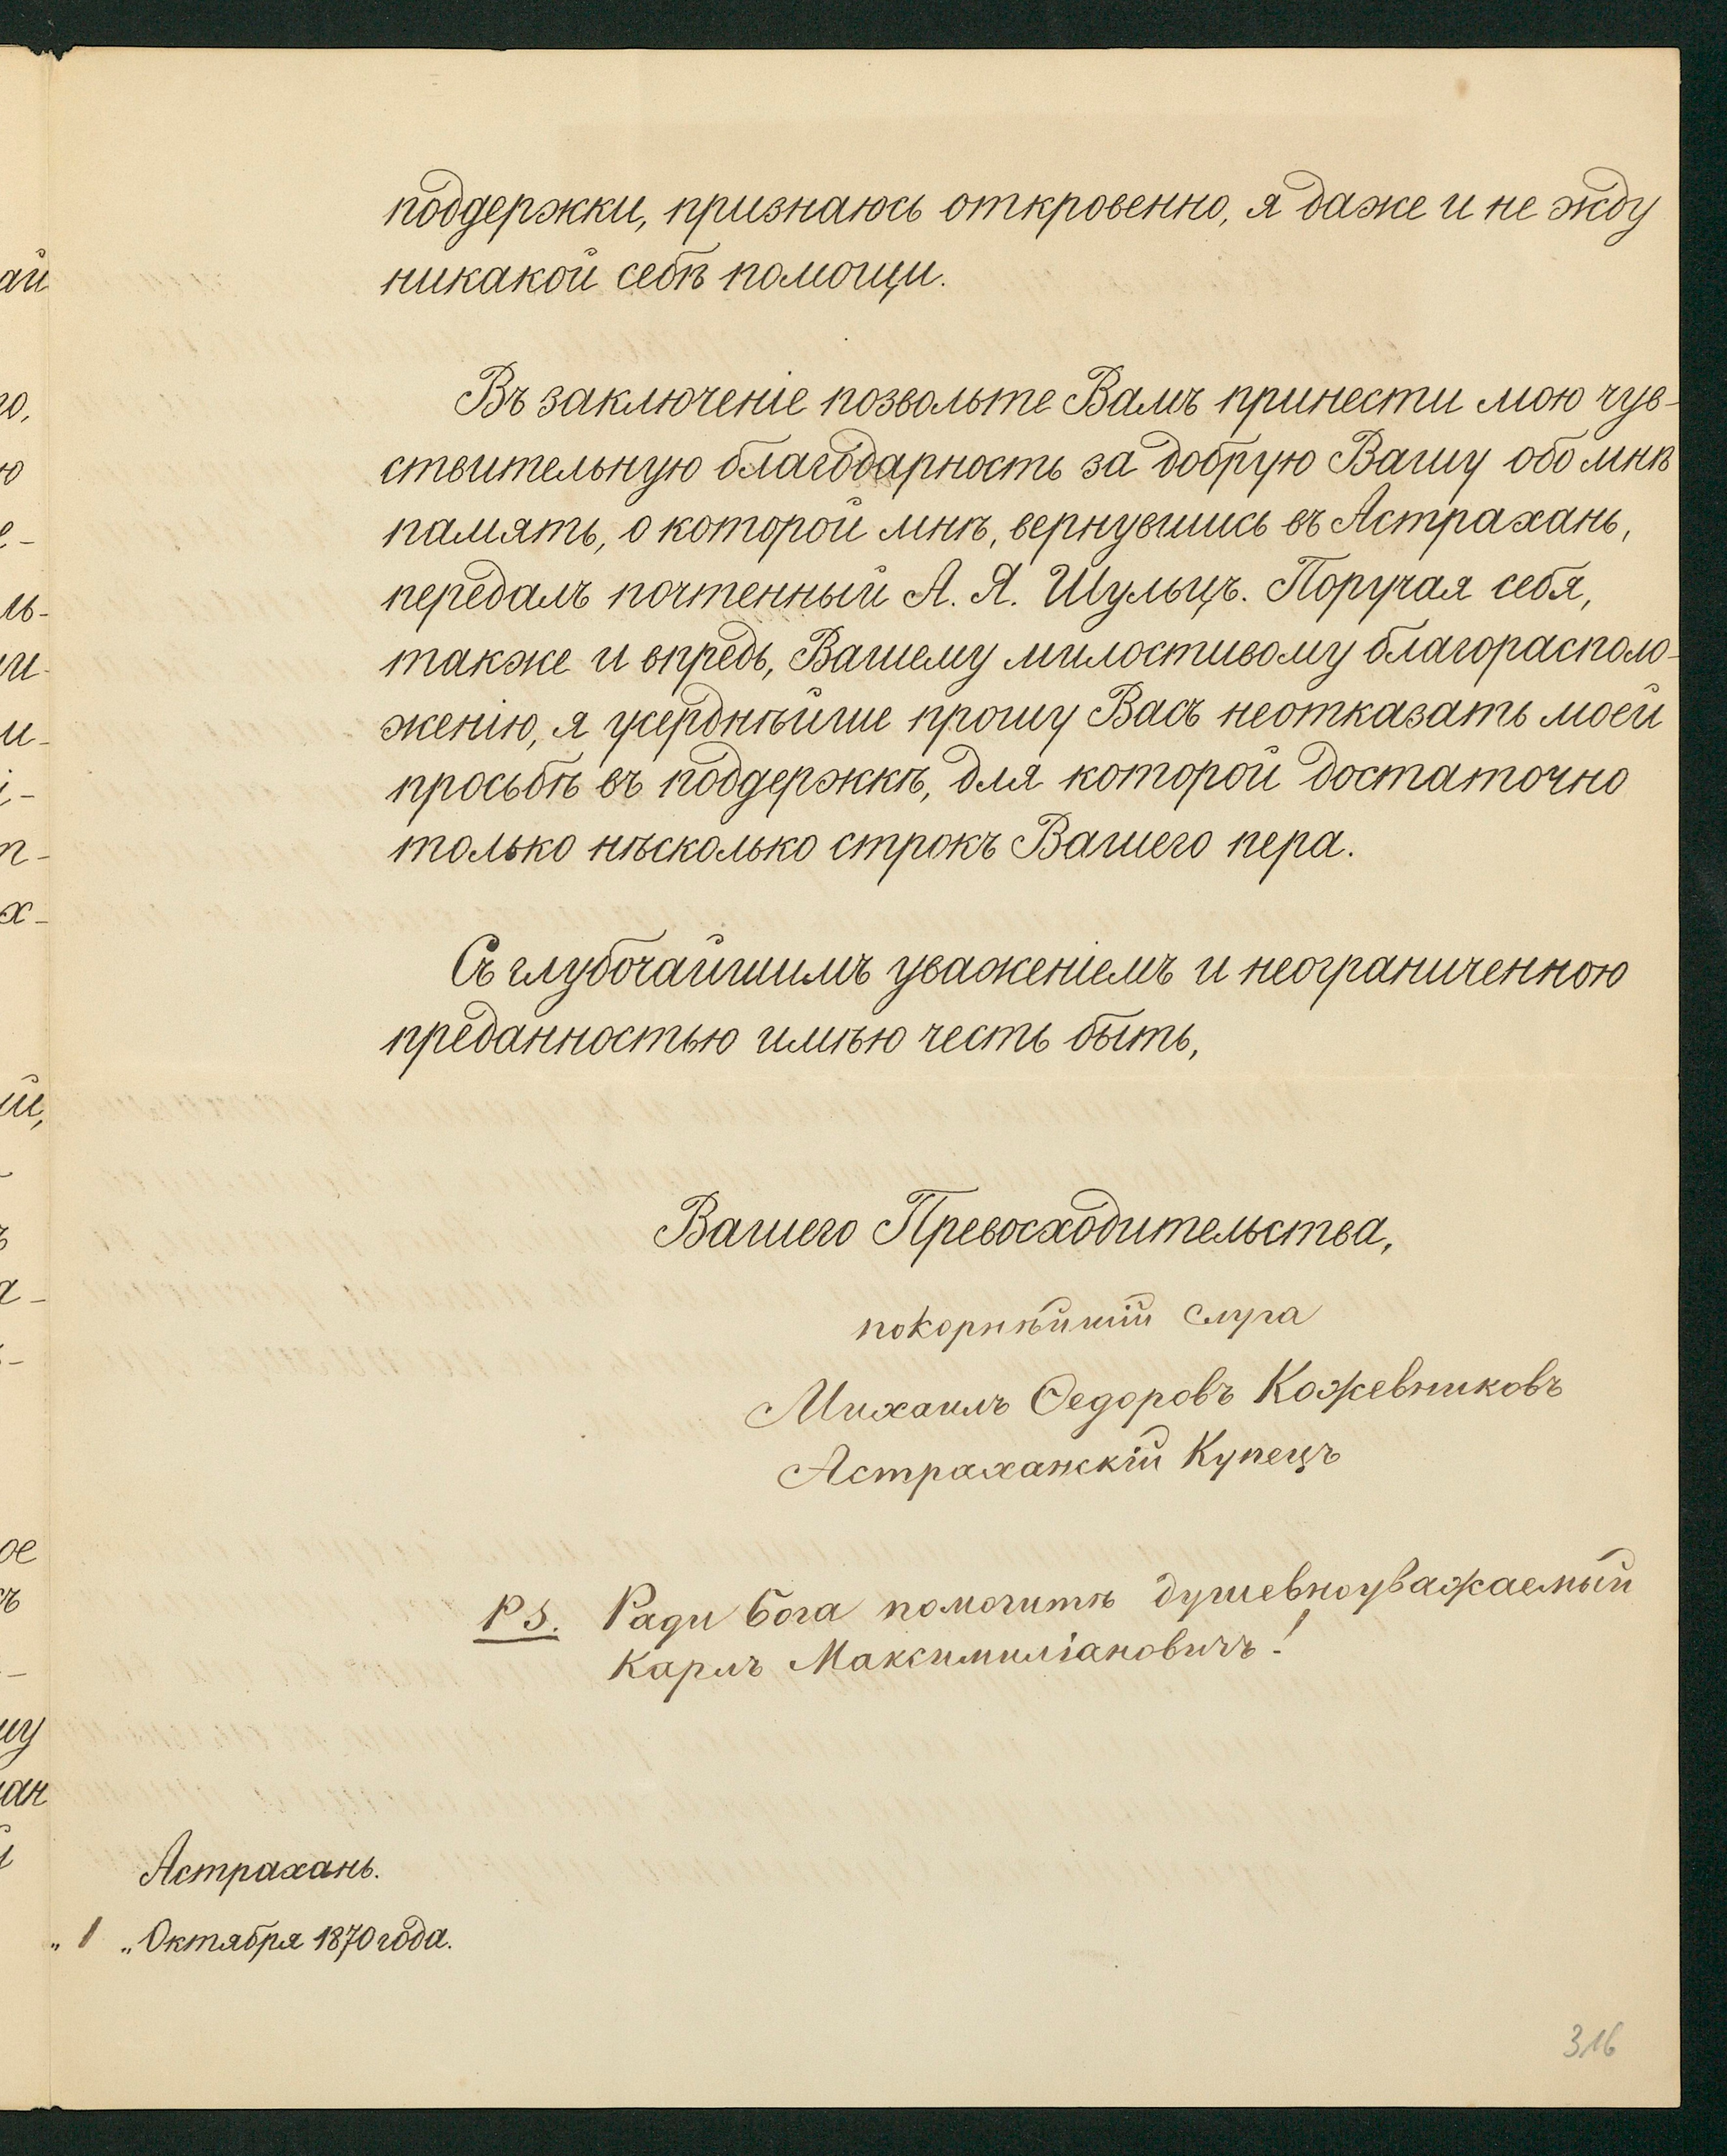 поддержки, признаюсь откровенно, я даже и не жду
никакой себѣ помощи.
Въ заключеніе позвольте Вамъ принести мою чув-
ствительную благодарность за добрую Вашу обо мнѣ
память, о которой мнѣ, вернувшись въ Астрахань,
передалъ почтенный А. Я. Шульцъ. Поручая себя,
также и впредь, Вашему милостивому благорасполо-
женію, я усерднѣйше прошу Васъ неотказать моей
просьбѣ въ поддержкѣ, для которой достаточно
только нѣсколько строкъ Вашего пера.
Съ глубочайшимъ уваженіемъ и неограниченною
преданностью имѣю честь быть,
Вашего Превосходительства,
покорнѣйшій слуга
Михаилъ Ѳедоровъ Кожевниковъ
Астраханскій Купецъ
PS. Ради бога помогитѣ душевноуважаемый
Карлъ Максимиліановичъ!
Астрахань.
„ 1 „ Октября 1870 года.
316